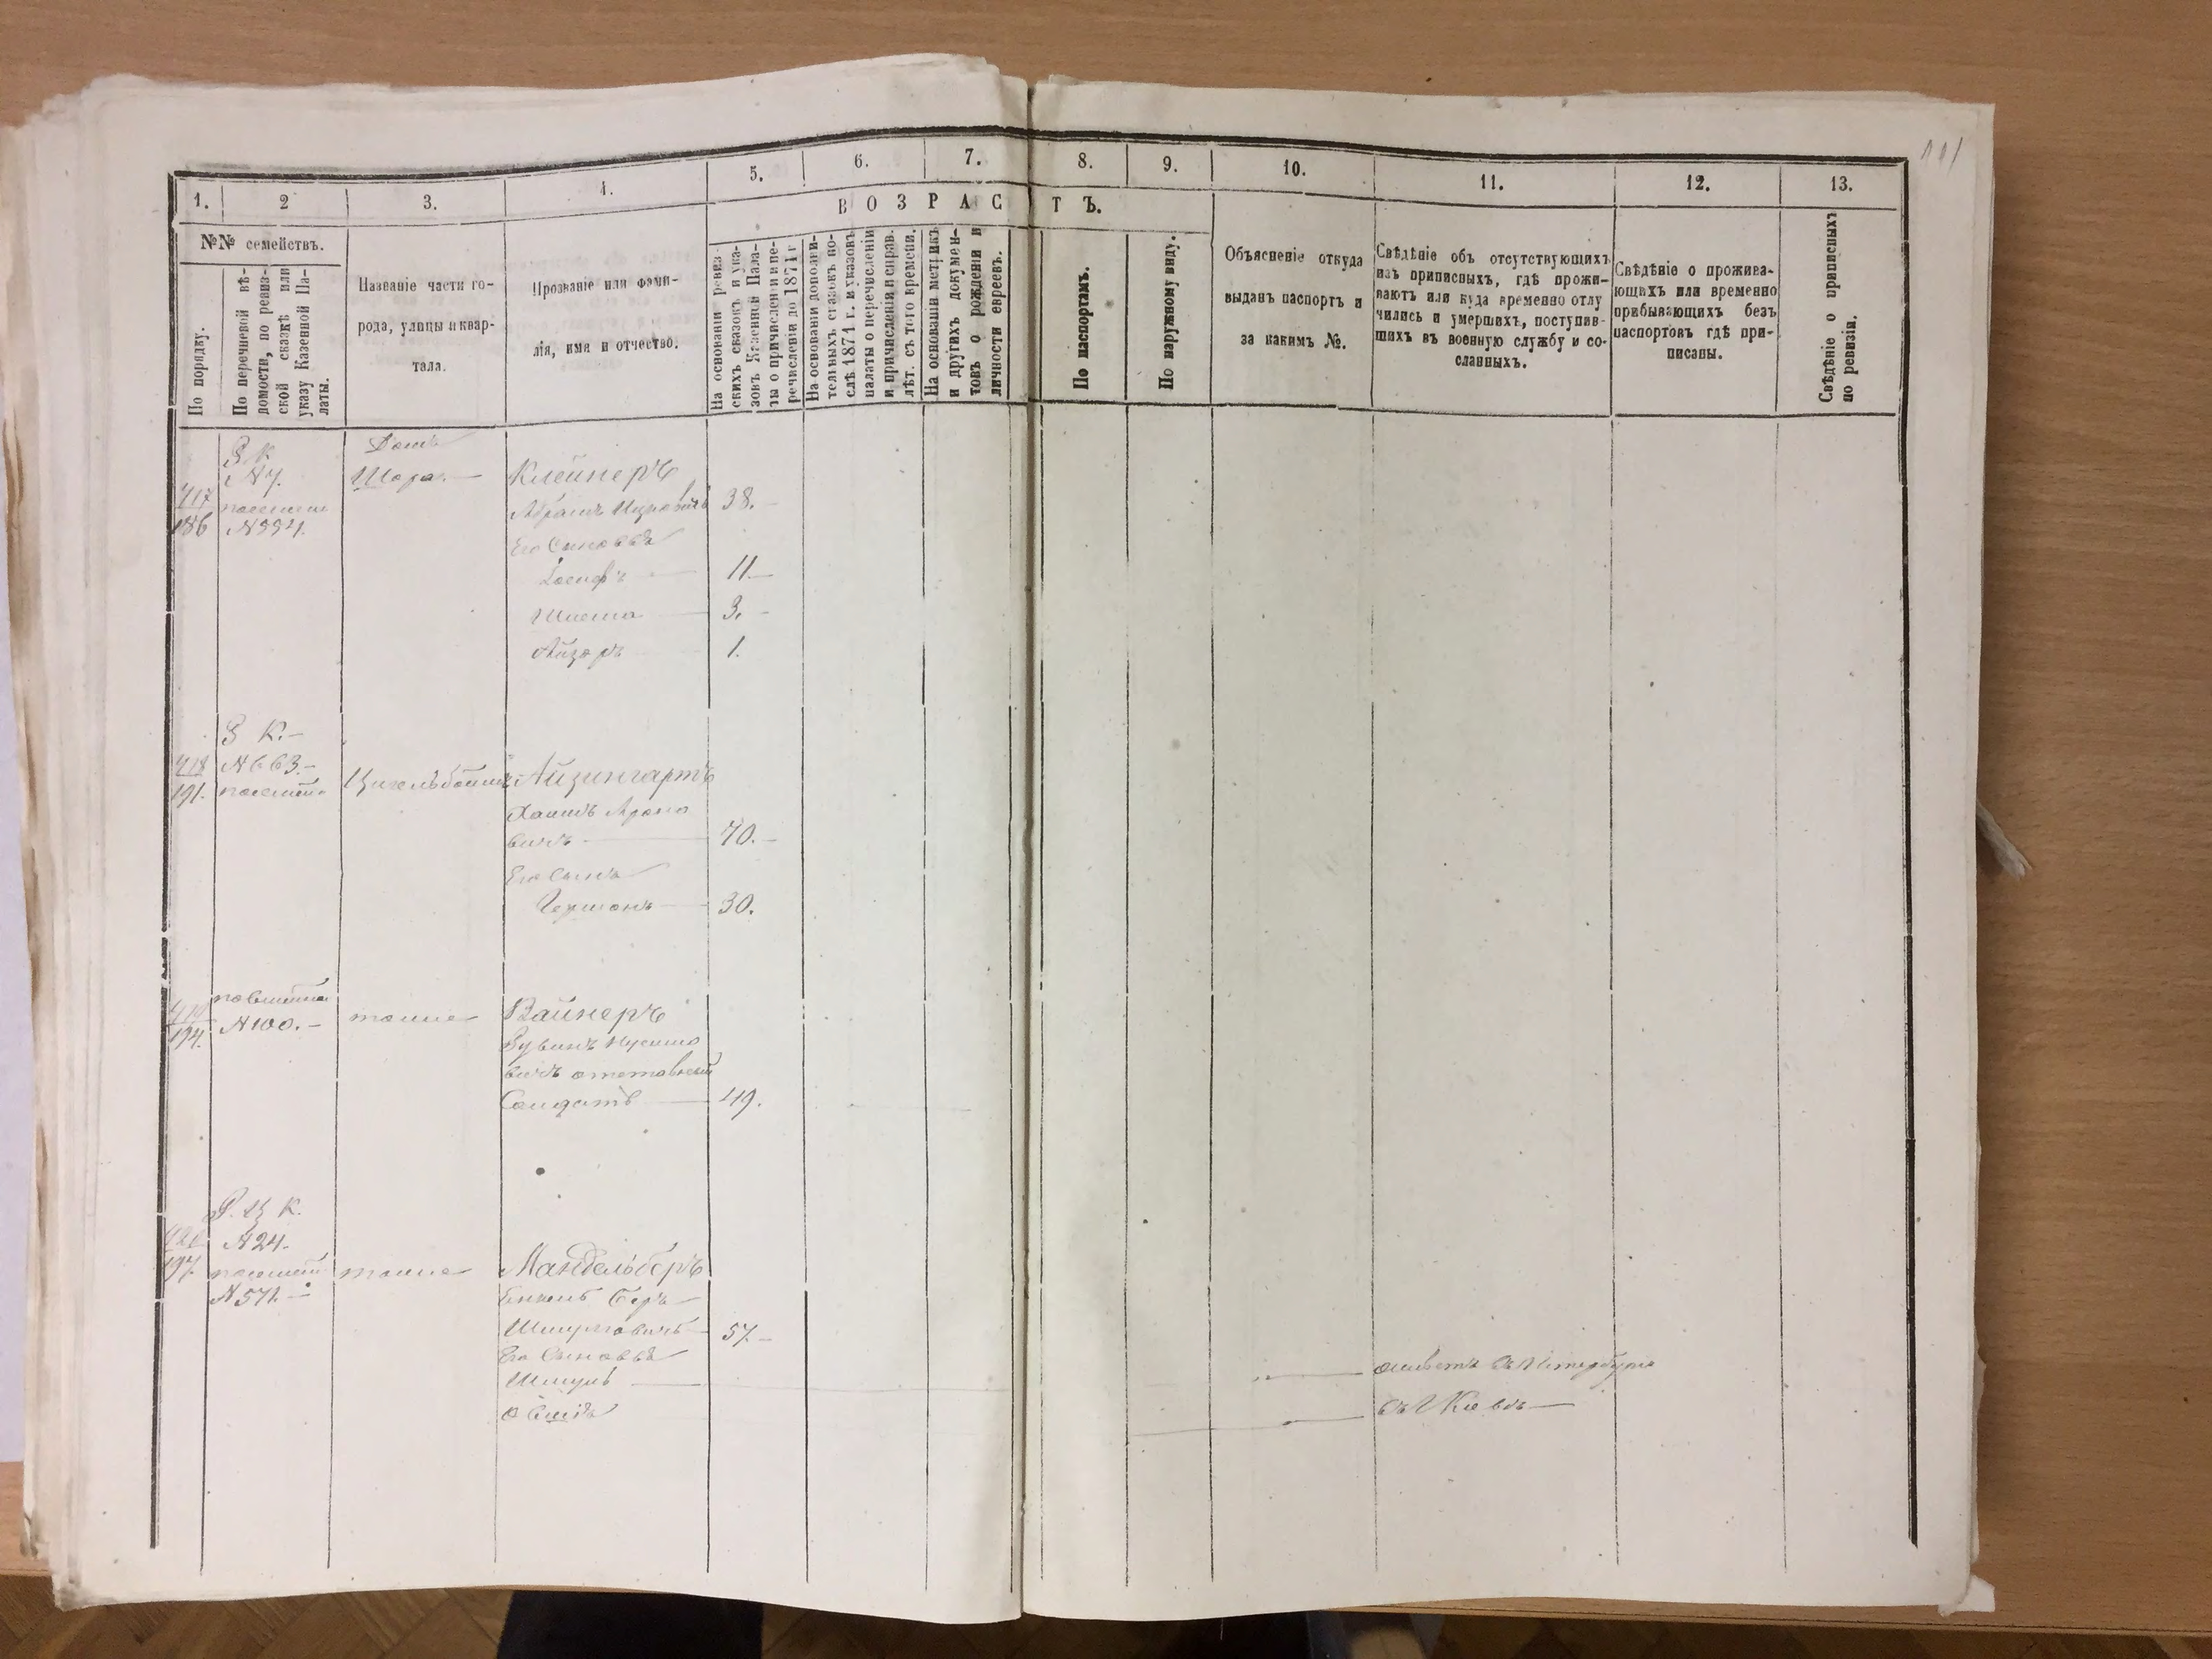 111
1.
2
3.
4.
5.
6.
7.
8.
9.
10.
11.
12.
13.
В О З Р А С Т Ъ.
№№ семействъ.
По порядку.
По перечневой вѣ-
домости, по ревиз-
ской сказкѣ или
указу Казенной Па-
латы.
Названіе части го-
рода, улицы и квар-
тала.
Прозваніе или фами-
лія, имя и отчество.
На основаніи ревиз-
скихъ сказокъ и ука-
зовъ Казенной Пала-
ты о причисленіи и пе-
речисленіи до 1871 г
На основаніи дополни-
тельныхъ сказокъ по-
слѣ 1871 г. и указовъ
палаты о перечисленіи
и причисленіи и справ.
лѣт. съ того времени.
На основаніи метрикъ
и другихъ докумен-
товъ о рожденіи и
личности евреевъ.
По паспортамъ.
По наружному виду.
Объясненіе откуда
выданъ паспортъ и
за какимъ №.
Свѣдѣніе объ отсутствующихъ
изъ приписныхъ, гдѣ прожи-
ваютъ или куда временно отлу
чились и умершихъ, поступив-
шихъ въ военную службу и со-
сланныхъ.
Свѣдѣніе о прожива-
ющихъ или временно
прибывающихъ безъ
паспортовъ гдѣ при-
писаны.
Свѣдѣніе о приписныхъ
по ревизіи.
Домъ
Шора.
417
186
Клейнеръ
Абрамъ Ицковичъ 38.
Его Сыновья
Іосифъ 11
3.
Айзоръ 1.
З К.
418
191.
N 663.
Айзингартъ
Хаимъ Ароно
вичъ 70.
Его Сынъ
Гершонъ 30.
419
194.
N 100. тоже Вайнеръ
Рувинъ
вичъ отставный
Солдатъ 49.
Р. Ц К.
420
197.
N 24.
тоже Мандельберъ
N 571.
Беръ
Шмулевичъ 57.
Его Сыновья
Шмуль
въ Петербургѣ
въ г Кіевѣ